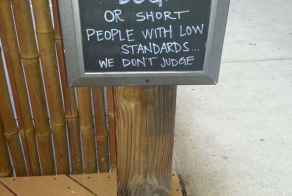 OR SHORT
PEOPLE WITH LOW
STANDARDS...
WE DON'T JUDGE